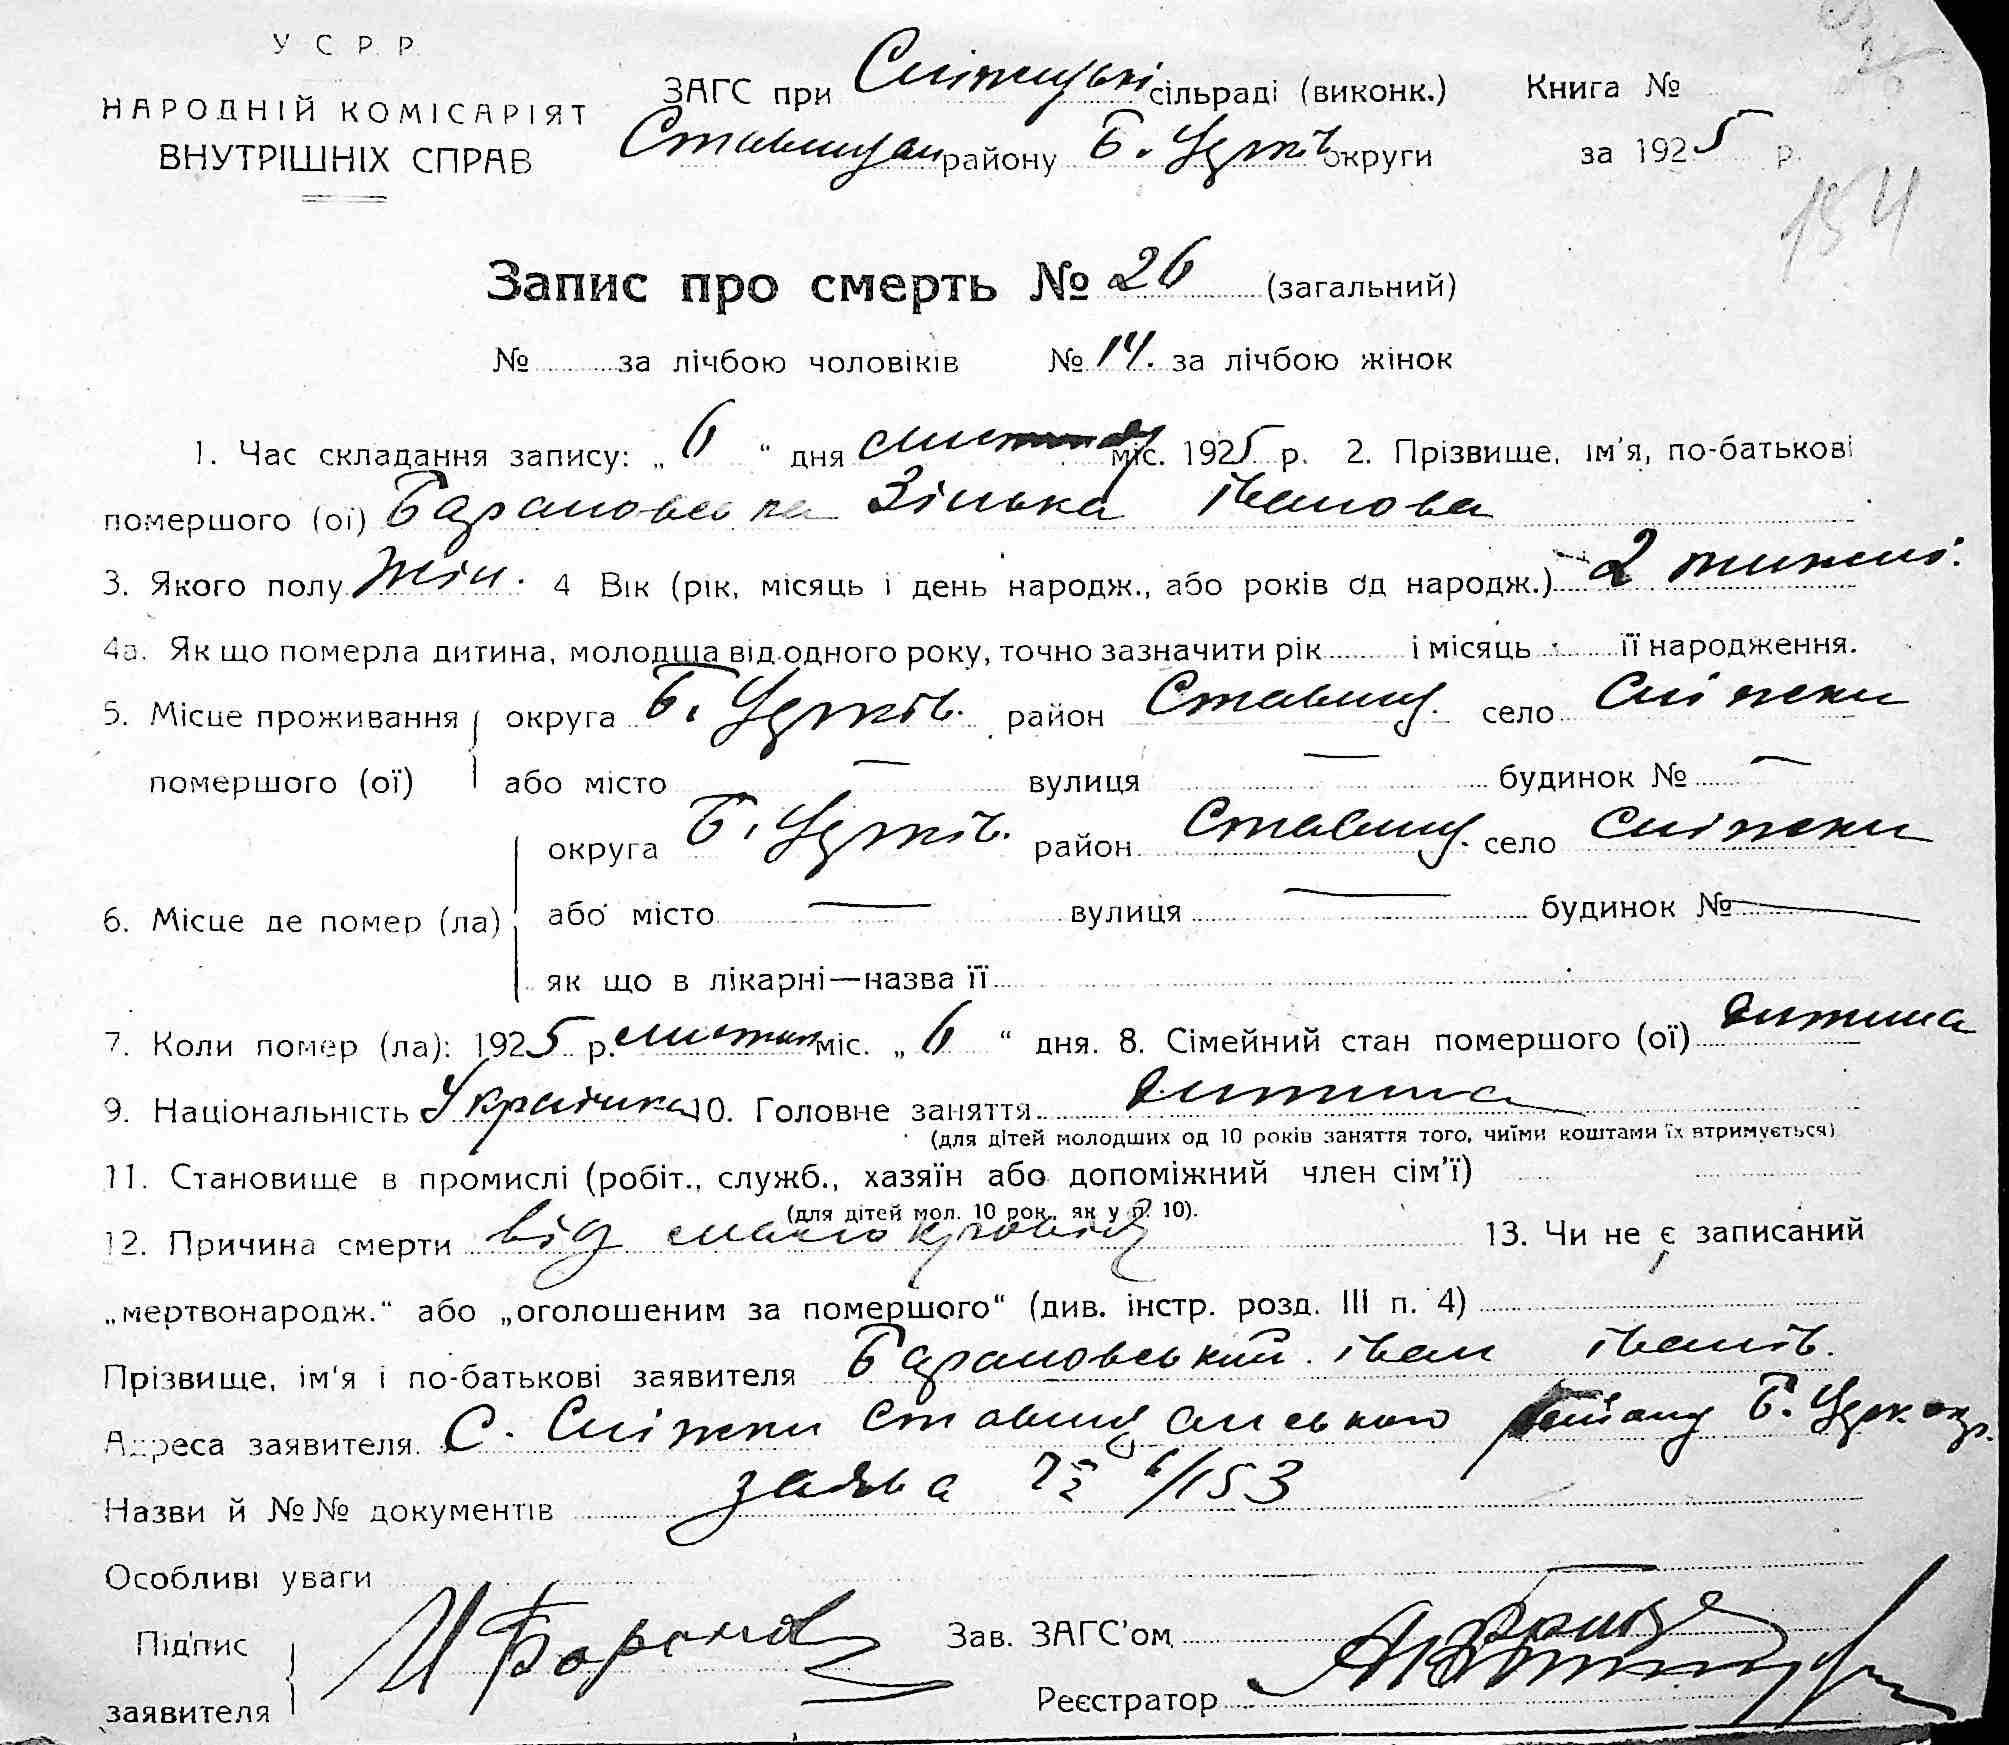 У С Р Р.
НАРОДНІЙ КОМІСАРІЯТ
ВНУТРІШНІХ СПРАВ
ЗАГС при Сніжецькі сільраді (виконк.) Книга №
Ставищан району Б. Церків округи за 1925 р.
154
Запис про смерть № 26 (загальний)
№ за лічбою чоловіків № 14. за лічбою жінок
1. Час складання запису: „ 6 “ дня листопаду міс. 1925 р. 2. Прізвище, ім'я, по-батькові
помершого (ої) Барановська Зінька Іванова
3. Якого полу Жін. 4 Вік (рік, місяць і день народж., або років од народж.) 2 тижні.
4а. Як що померла дитина, молодша від одного року, точно зазначити рік і місяць її народження.
5. Місце проживання округа Б. Церків. район Ставищ. село Сніжки
помершого (ої) або місто — вулиця — будинок № —
округа Б. Церків. район Ставищ. село Сніжки
6. Місце де помер (ла) або місто — вулиця — будинок № —
як що в лікарні—назва її
7. Коли помер (ла): 1925 р. листоп міс. „ 6 “ дня. 8. Сімейний стан помершого (ої) дитина
9. Національність Українка 10. Головне заняття дитина
(для дітей молодших од 10 років заняття того, чиїми коштами їх втримується)
11. Становище в промислі (робіт., служб., хазяїн або допоміжний член сім'ї)
(для дітей мол. 10 рок., як у п. 10).
12. Причина смерти від малокровія 13. Чи не є записаний
„мертвонародж.“ або „оголошеним за помершого“ (див. інстр. розд. III п. 4)
Прізвище, ім'я і по-батькові заявителя Барановський Іван Іванів.
Адреса заявителя. С. Сніжки Ставищанського району Б. Церк. окр.
Назви й №№ документів заява 6/153
Особливі уваги
Підпис
заявителя
И Боронов
Зав. ЗАГС'ом
Реєстратор